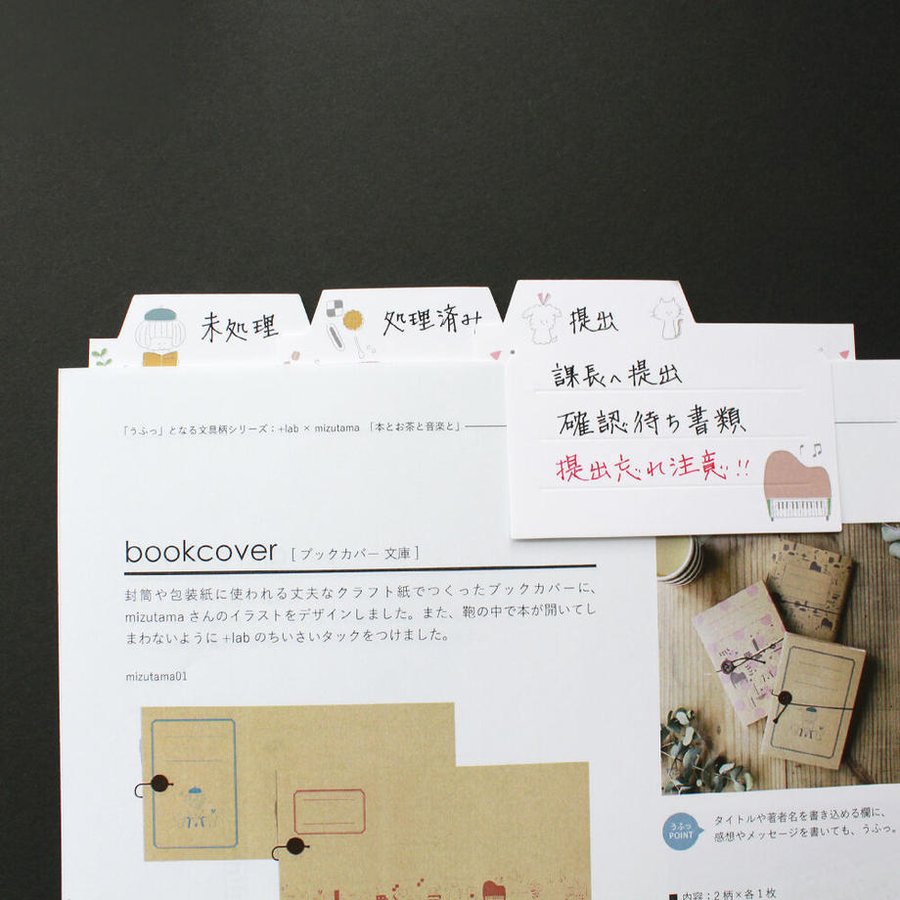 未処理
処理済み
提出
課長へ提出
確認待ち書類
提出忘れ注意!!
「うふっ」となる文具柄シリーズ：+lab × mizutama 「本とお茶と音楽と」
bookcover [ ブックカバー 文庫 ]
封筒や包装紙に使われる丈夫なクラフト紙でつくったブックカバーに、
mizutama さんのイラストをデザインしました。また、鞄の中で本が開いてし
まわないように +lab のちいさいタックをつけました。
mizutama01
うふっ
POINT
タイトルや著者名を書き込める欄に、
感想やメッセージを書いても、うふっ。
■ 内容：2柄×各1枚